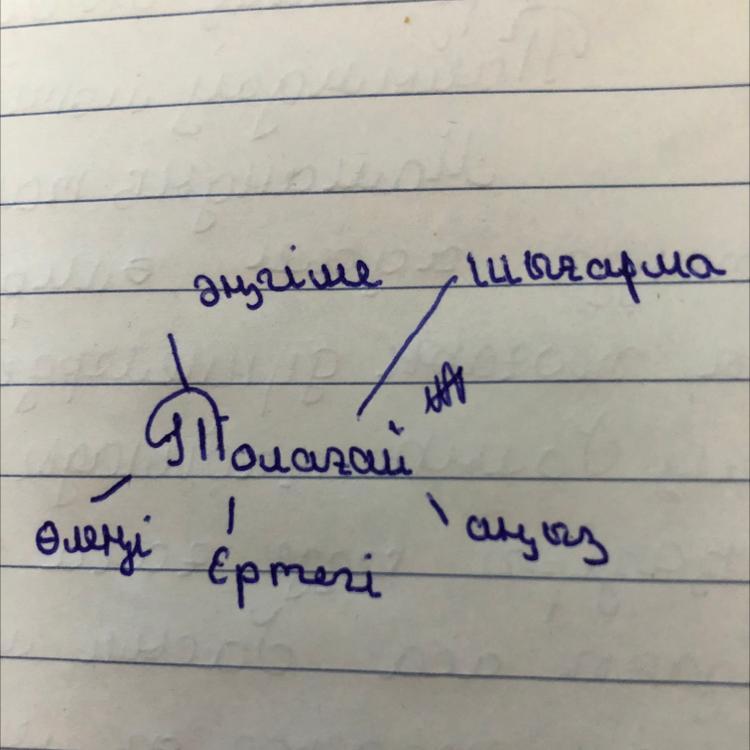 әңгіме шығарма
Толағай
өлеңі
Ертегі
аңыз